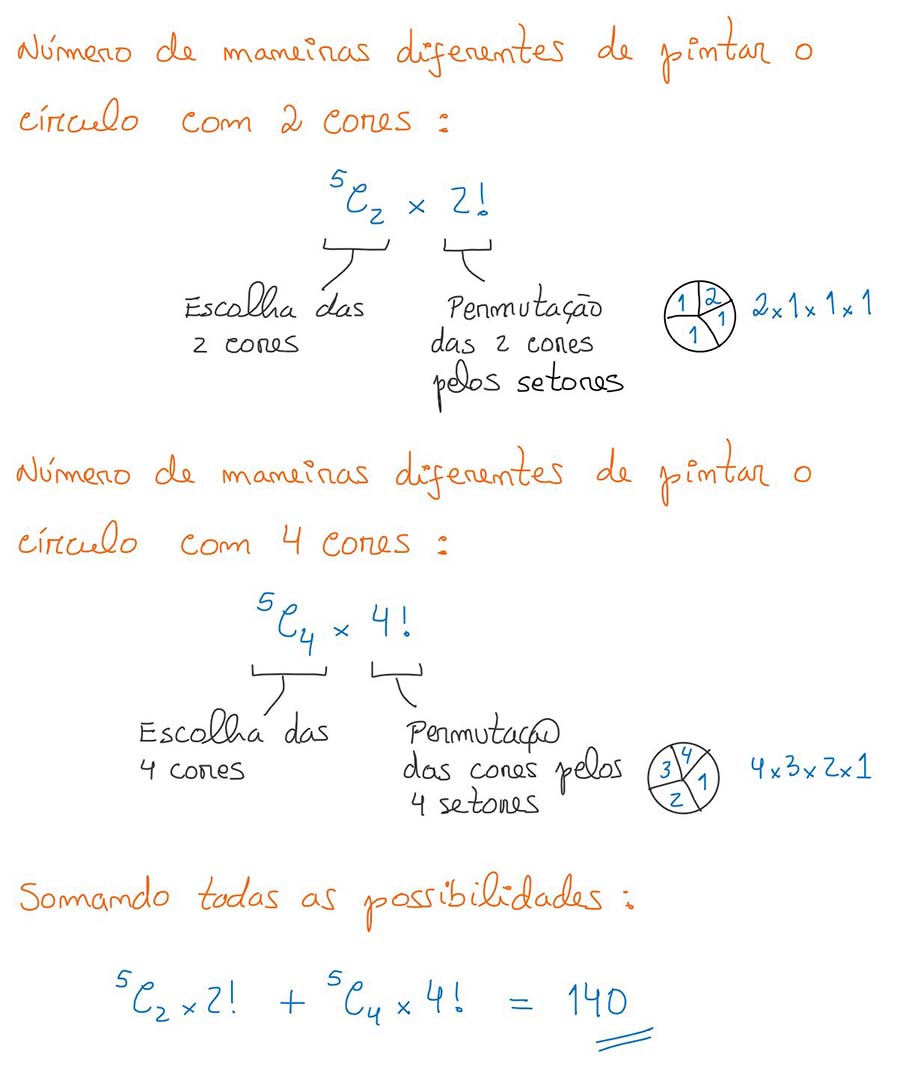 Número de maneiras diferentes de pintar o
círculo com 2 cores :
⁵C₂ × 2!
Escolha das
2 cores
Permutação
das 2 cores
pelos setores
1 2
1
1
2×1×1×1
Número de maneiras diferentes de pintar o
círculo com 4 cores :
⁵C₄ × 4!
Escolha das
4 cores
Permutação
das cores pelos
4 setores
3 4
1
2
4×3×2×1
Somando todas as possibilidades :
⁵C₂ × 2! + ⁵C₄ × 4! = 140